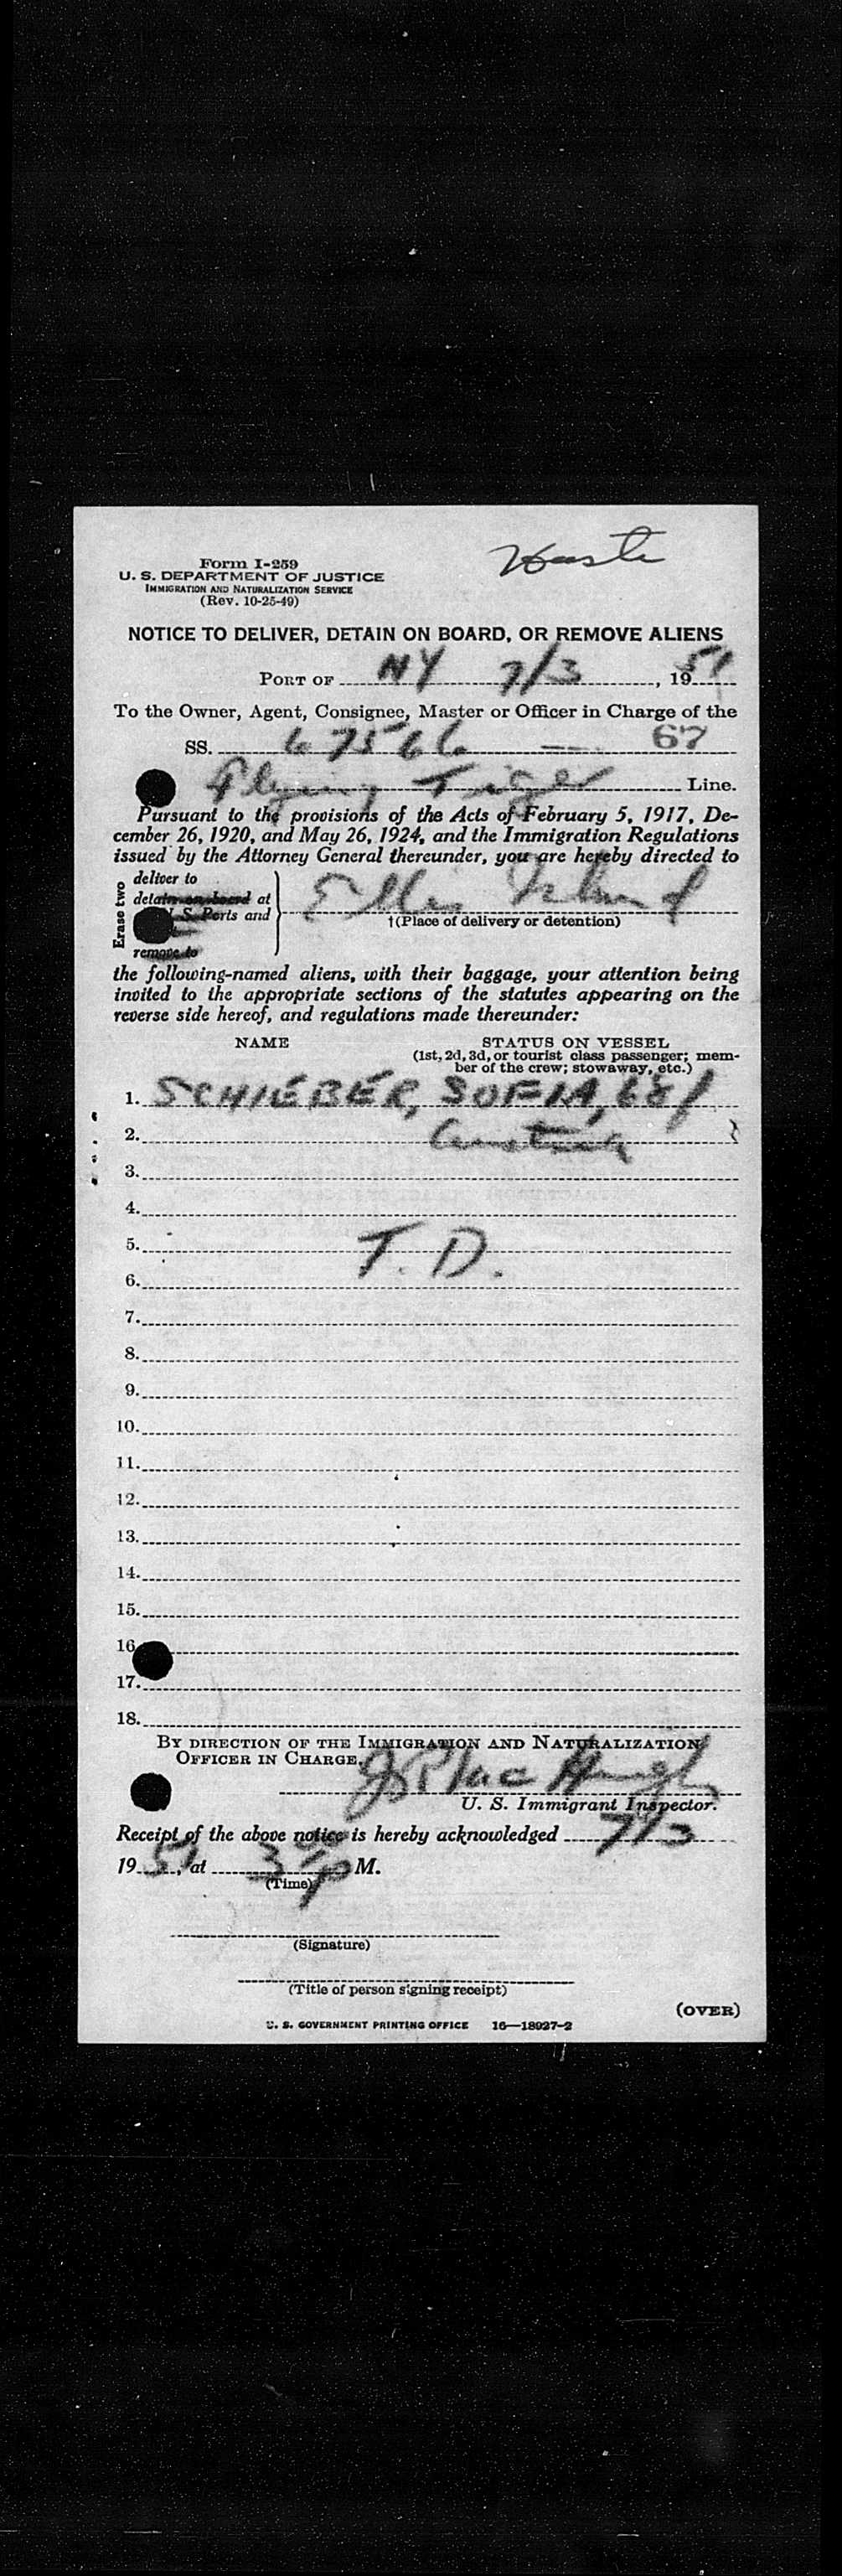 Form I-259
U. S. DEPARTMENT OF JUSTICE
IMMIGRATION AND NATURALIZATION SERVICE
(Rev. 10-25-49)
NOTICE TO DELIVER, DETAIN ON BOARD, OR REMOVE ALIENS
PORT OF NY 7/3, 1951
To the Owner, Agent, Consignee, Master or Officer in Charge of the
SS. 67566 — 67
Flying Tiger Line.
Pursuant to the provisions of the Acts of February 5, 1917, De-
cember 26, 1920, and May 26, 1924, and the Immigration Regulations
issued by the Attorney General thereunder, you are hereby directed to
Erase two
deliver to
detain on board at
U. S. Ports and
remove to
Ellis Island
†(Place of delivery or detention)
the following-named aliens, with their baggage, your attention being
invited to the appropriate sections of the statutes appearing on the
reverse side hereof, and regulations made thereunder:
NAME STATUS ON VESSEL
(1st, 2d, 3d, or tourist class passenger; mem-
ber of the crew; stowaway, etc.)
1. SCHIEBER, SOFIA, 68 f
2. Austria
3.
4.
5. T. D.
6.
7.
8.
9.
10.
11.
12.
13.
14.
15.
16.
17.
18.
BY DIRECTION OF THE IMMIGRATION AND NATURALIZATION
OFFICER IN CHARGE.
U. S. Immigrant Inspector.
Receipt of the above notice is hereby acknowledged 7/3
1951, at 3 p M.
(Time)
(Signature)
(Title of person signing receipt)
(OVER)
U. S. GOVERNMENT PRINTING OFFICE 16—18927-2